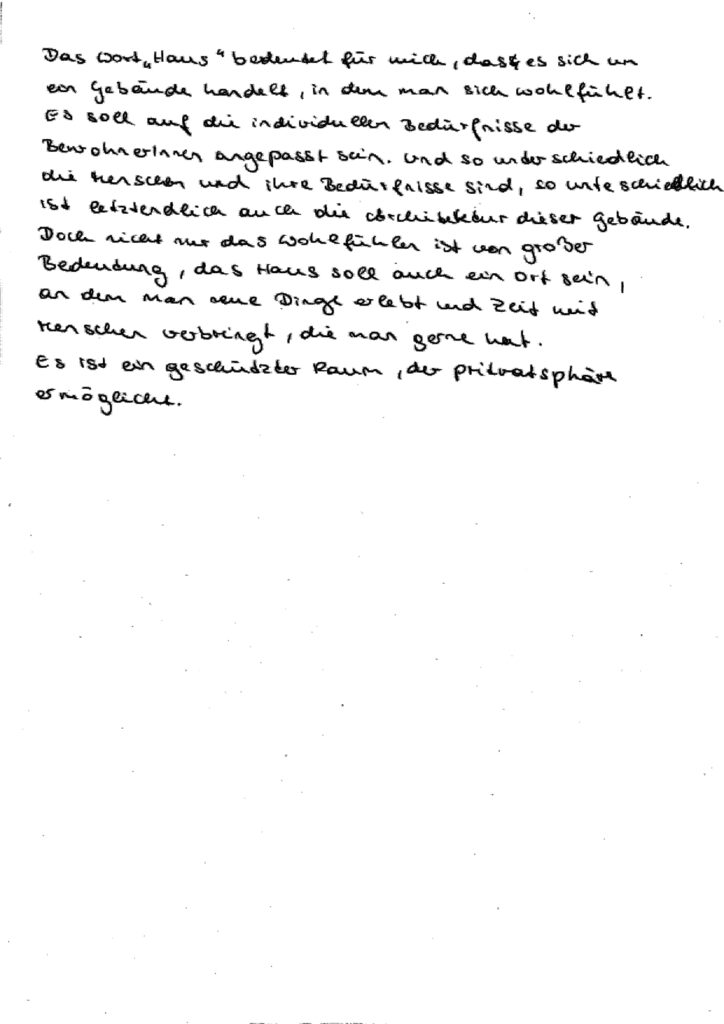 Das Wort „Haus" bedeutet für mich, dass es sich um
ein Gebäude handelt, in dem man sich wohlfühlt.
Es soll auf die individuellen Bedürfnisse der
BewohnerInnen angepasst sein. Und so unterschiedlich
die Menschen und ihre Bedürfnisse sind, so unterschiedlich
ist letztendlich auch die Architektur dieser Gebäude.
Doch nicht nur das Wohlfühlen ist von großer
Bedeutung, das Haus soll auch ein Ort sein,
an dem man neue Dinge erlebt und Zeit mit
Menschen verbringt, die man gerne hat.
Es ist ein geschützter Raum, der Privatsphäre
ermöglicht.